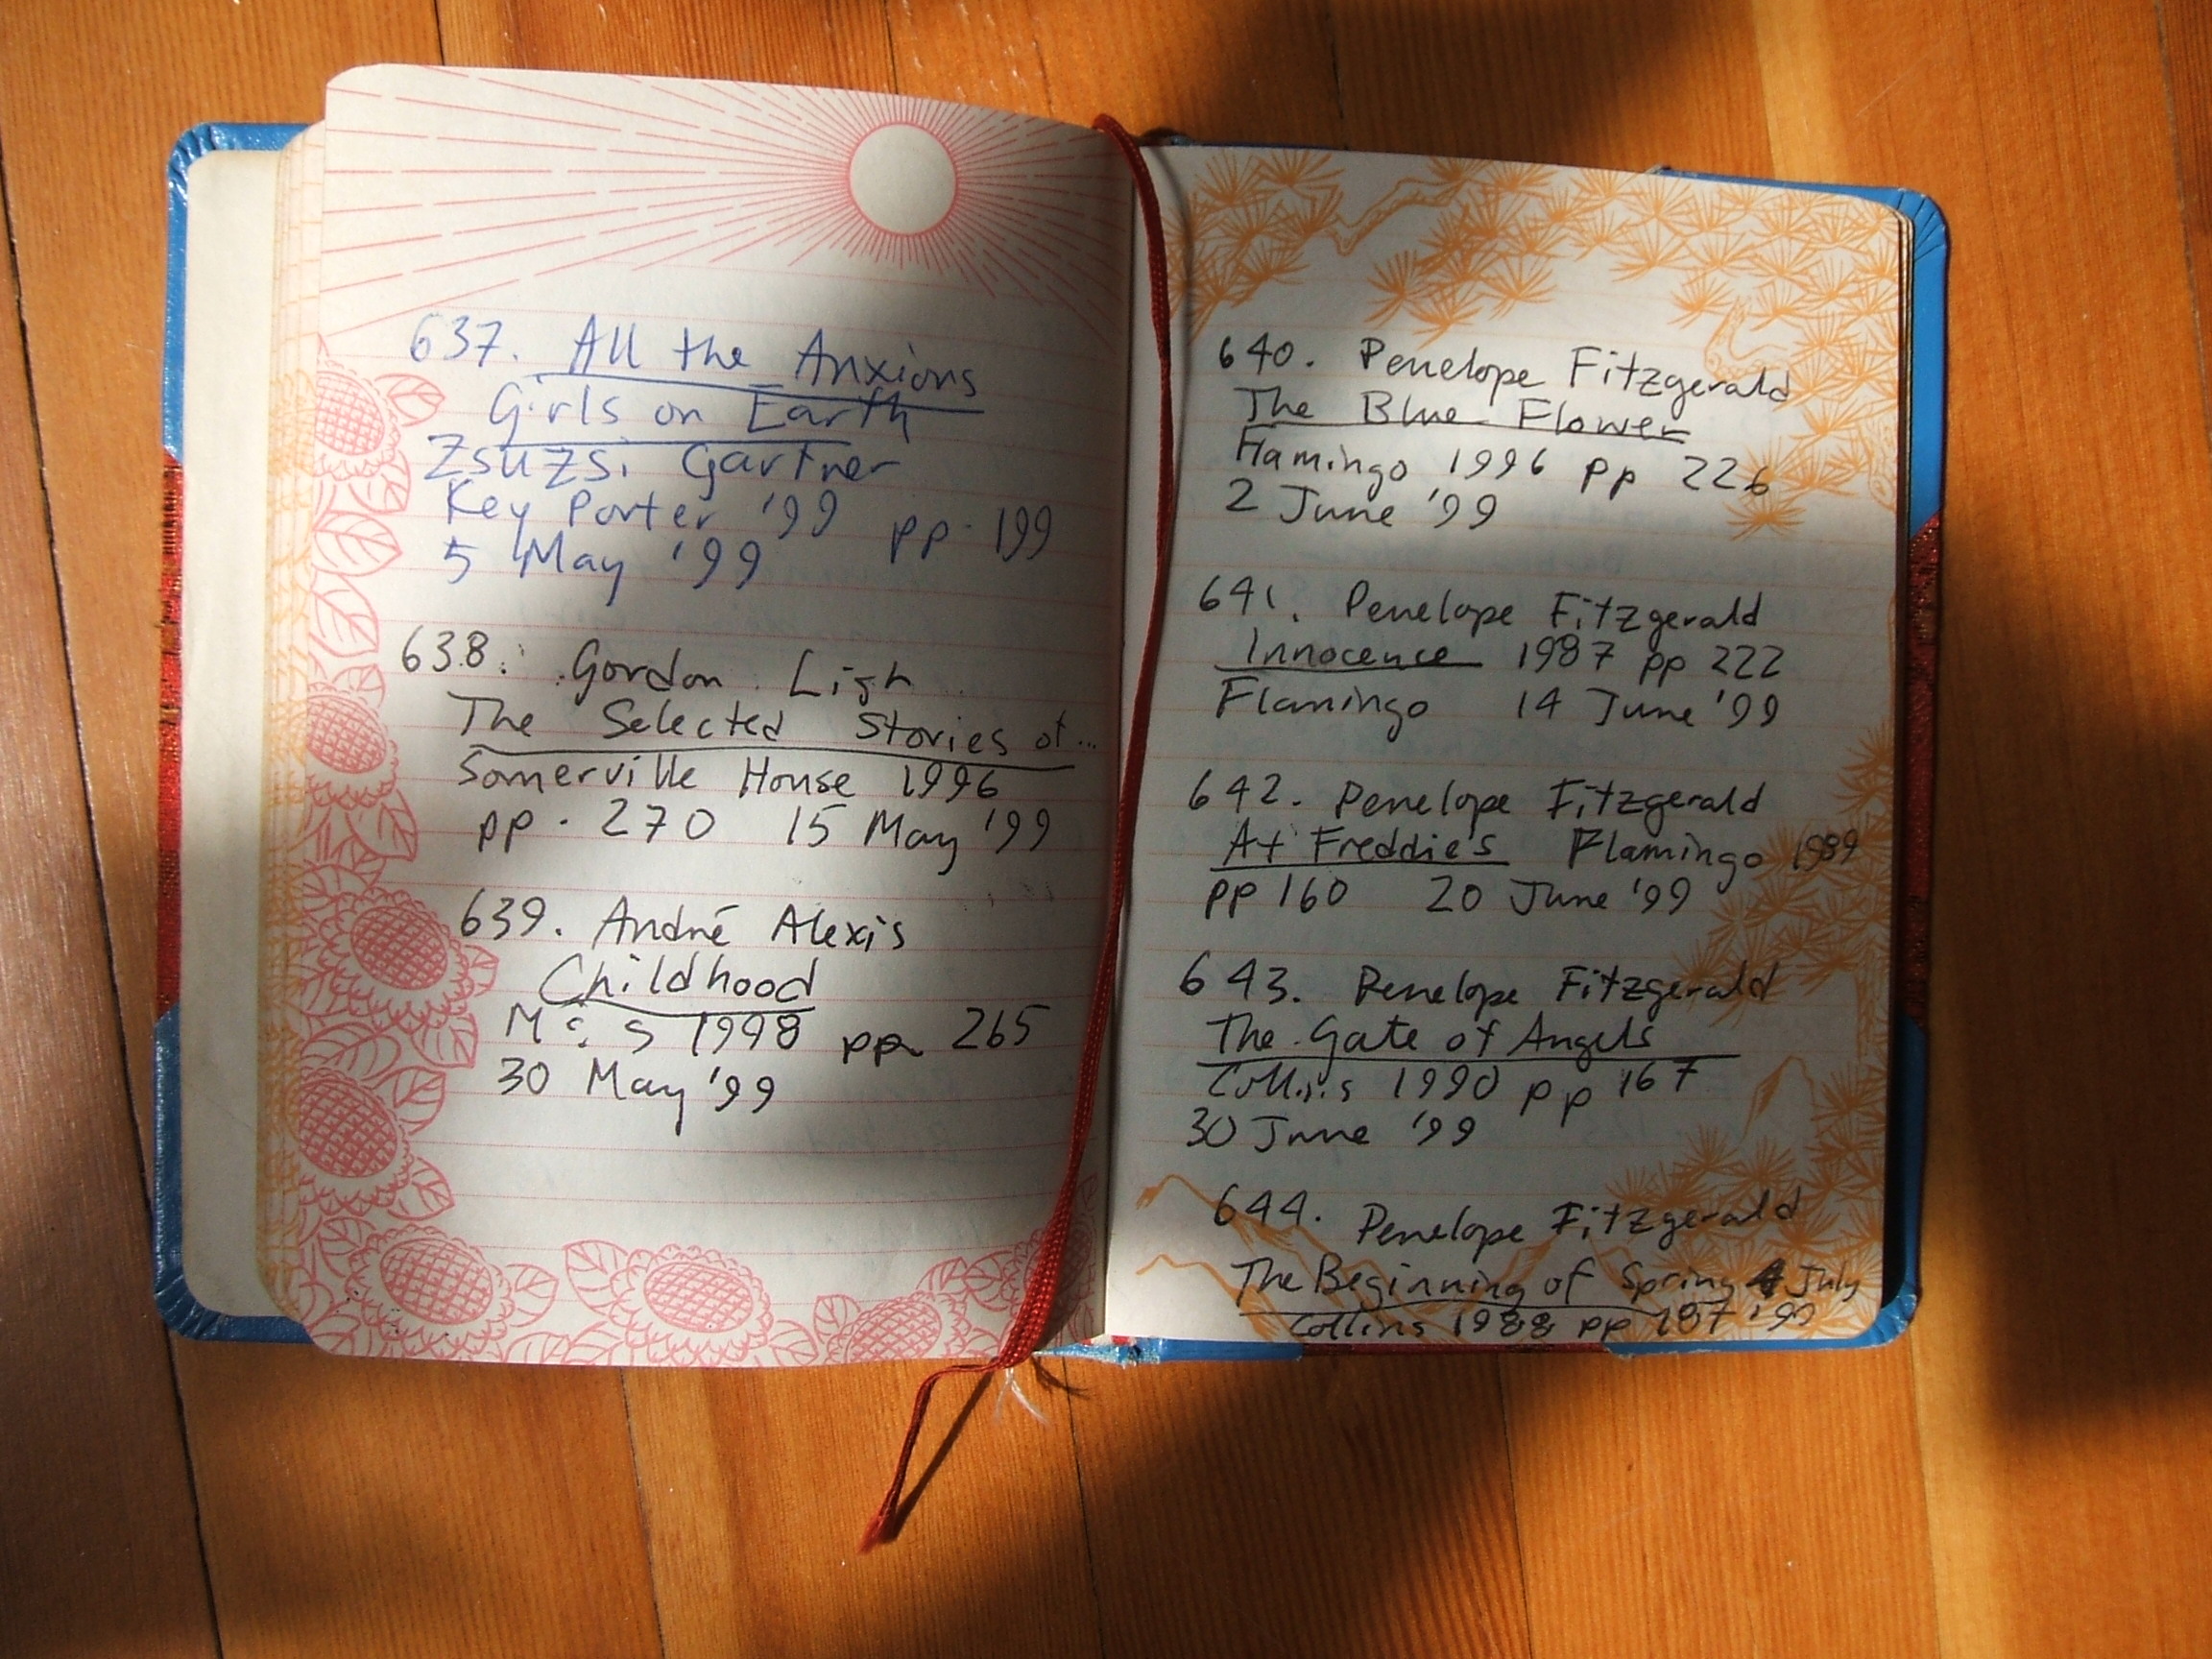 637. All the Anxious
Girls on Earth
Zsuzsi Gartner
Key Porter '99 pp. 199
5 May '99
638. Gordon Lish
The Selected Stories of...
Somerville House 1996
pp. 270 15 May '99
639. André Alexis
Childhood
M & S 1998 pp 265
30 May '99
640. Penelope Fitzgerald
The Blue Flower
Flamingo 1996 pp 226
2 June '99
641. Penelope Fitzgerald
Innocence 1987 pp 222
Flamingo 14 June '99
642. Penelope Fitzgerald
At Freddie's Flamingo 1989
pp 160 20 June '99
643. Penelope Fitzgerald
The Gate of Angels
Collins 1990 pp 167
30 June '99
644. Penelope Fitzgerald
The Beginning of Spring 4 July
Collins 1988 pp 187 '99